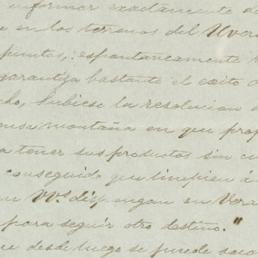 informar exactamente a
en los terrenos del Uver
puntos, espontaneamente
garantiza bastante el exito d
cho, hubiese la resolucion d
ensa montaña en que prop
a tener sus productos sin cu
conseguido que limpien i
ue VVs. dispongan en Vera
para seguir otro destino."
ue desde luego se puede saca